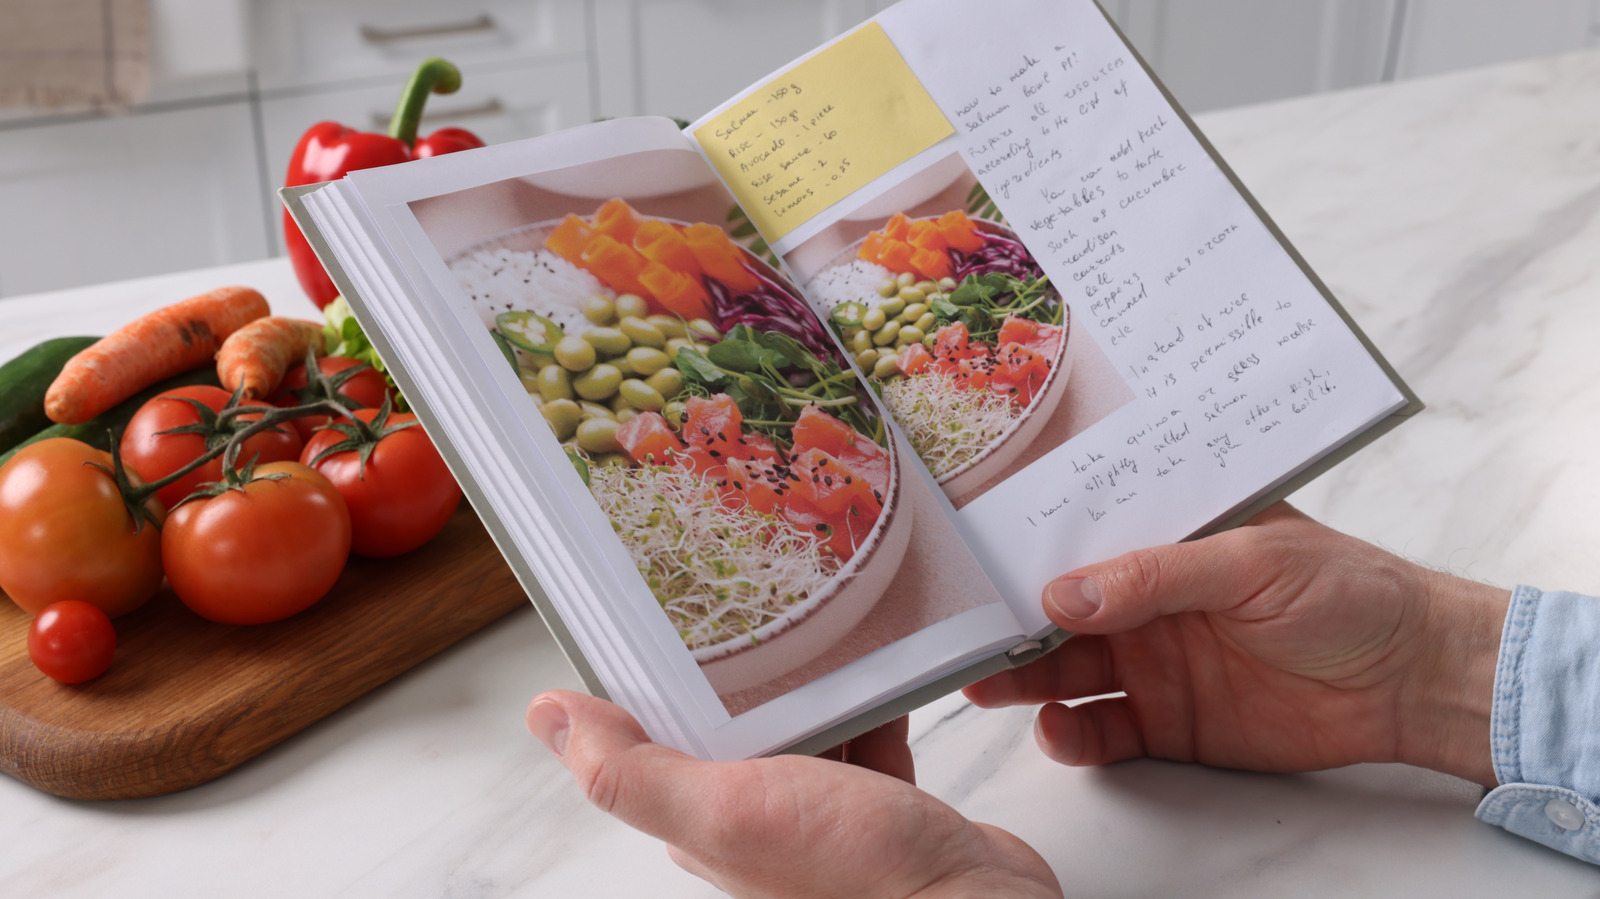 Salmon - 150 g
Rise - 150 gr
Avocado - 1 piece
Rise sauce - 60
Sesame - 2
Lemons - 0.25
how to make a
salmon bowl
Prepare all resources
according to the list of
ingredients.
You can add fresh
vegetables to taste
such as cucumber
carrots
bell
peppers
canned peas or corn
etc
Instead of rice
it is permissible to
take quinoa or glass noodle
I have slightly salted salmon
You can take any other fish,
you can boil it.